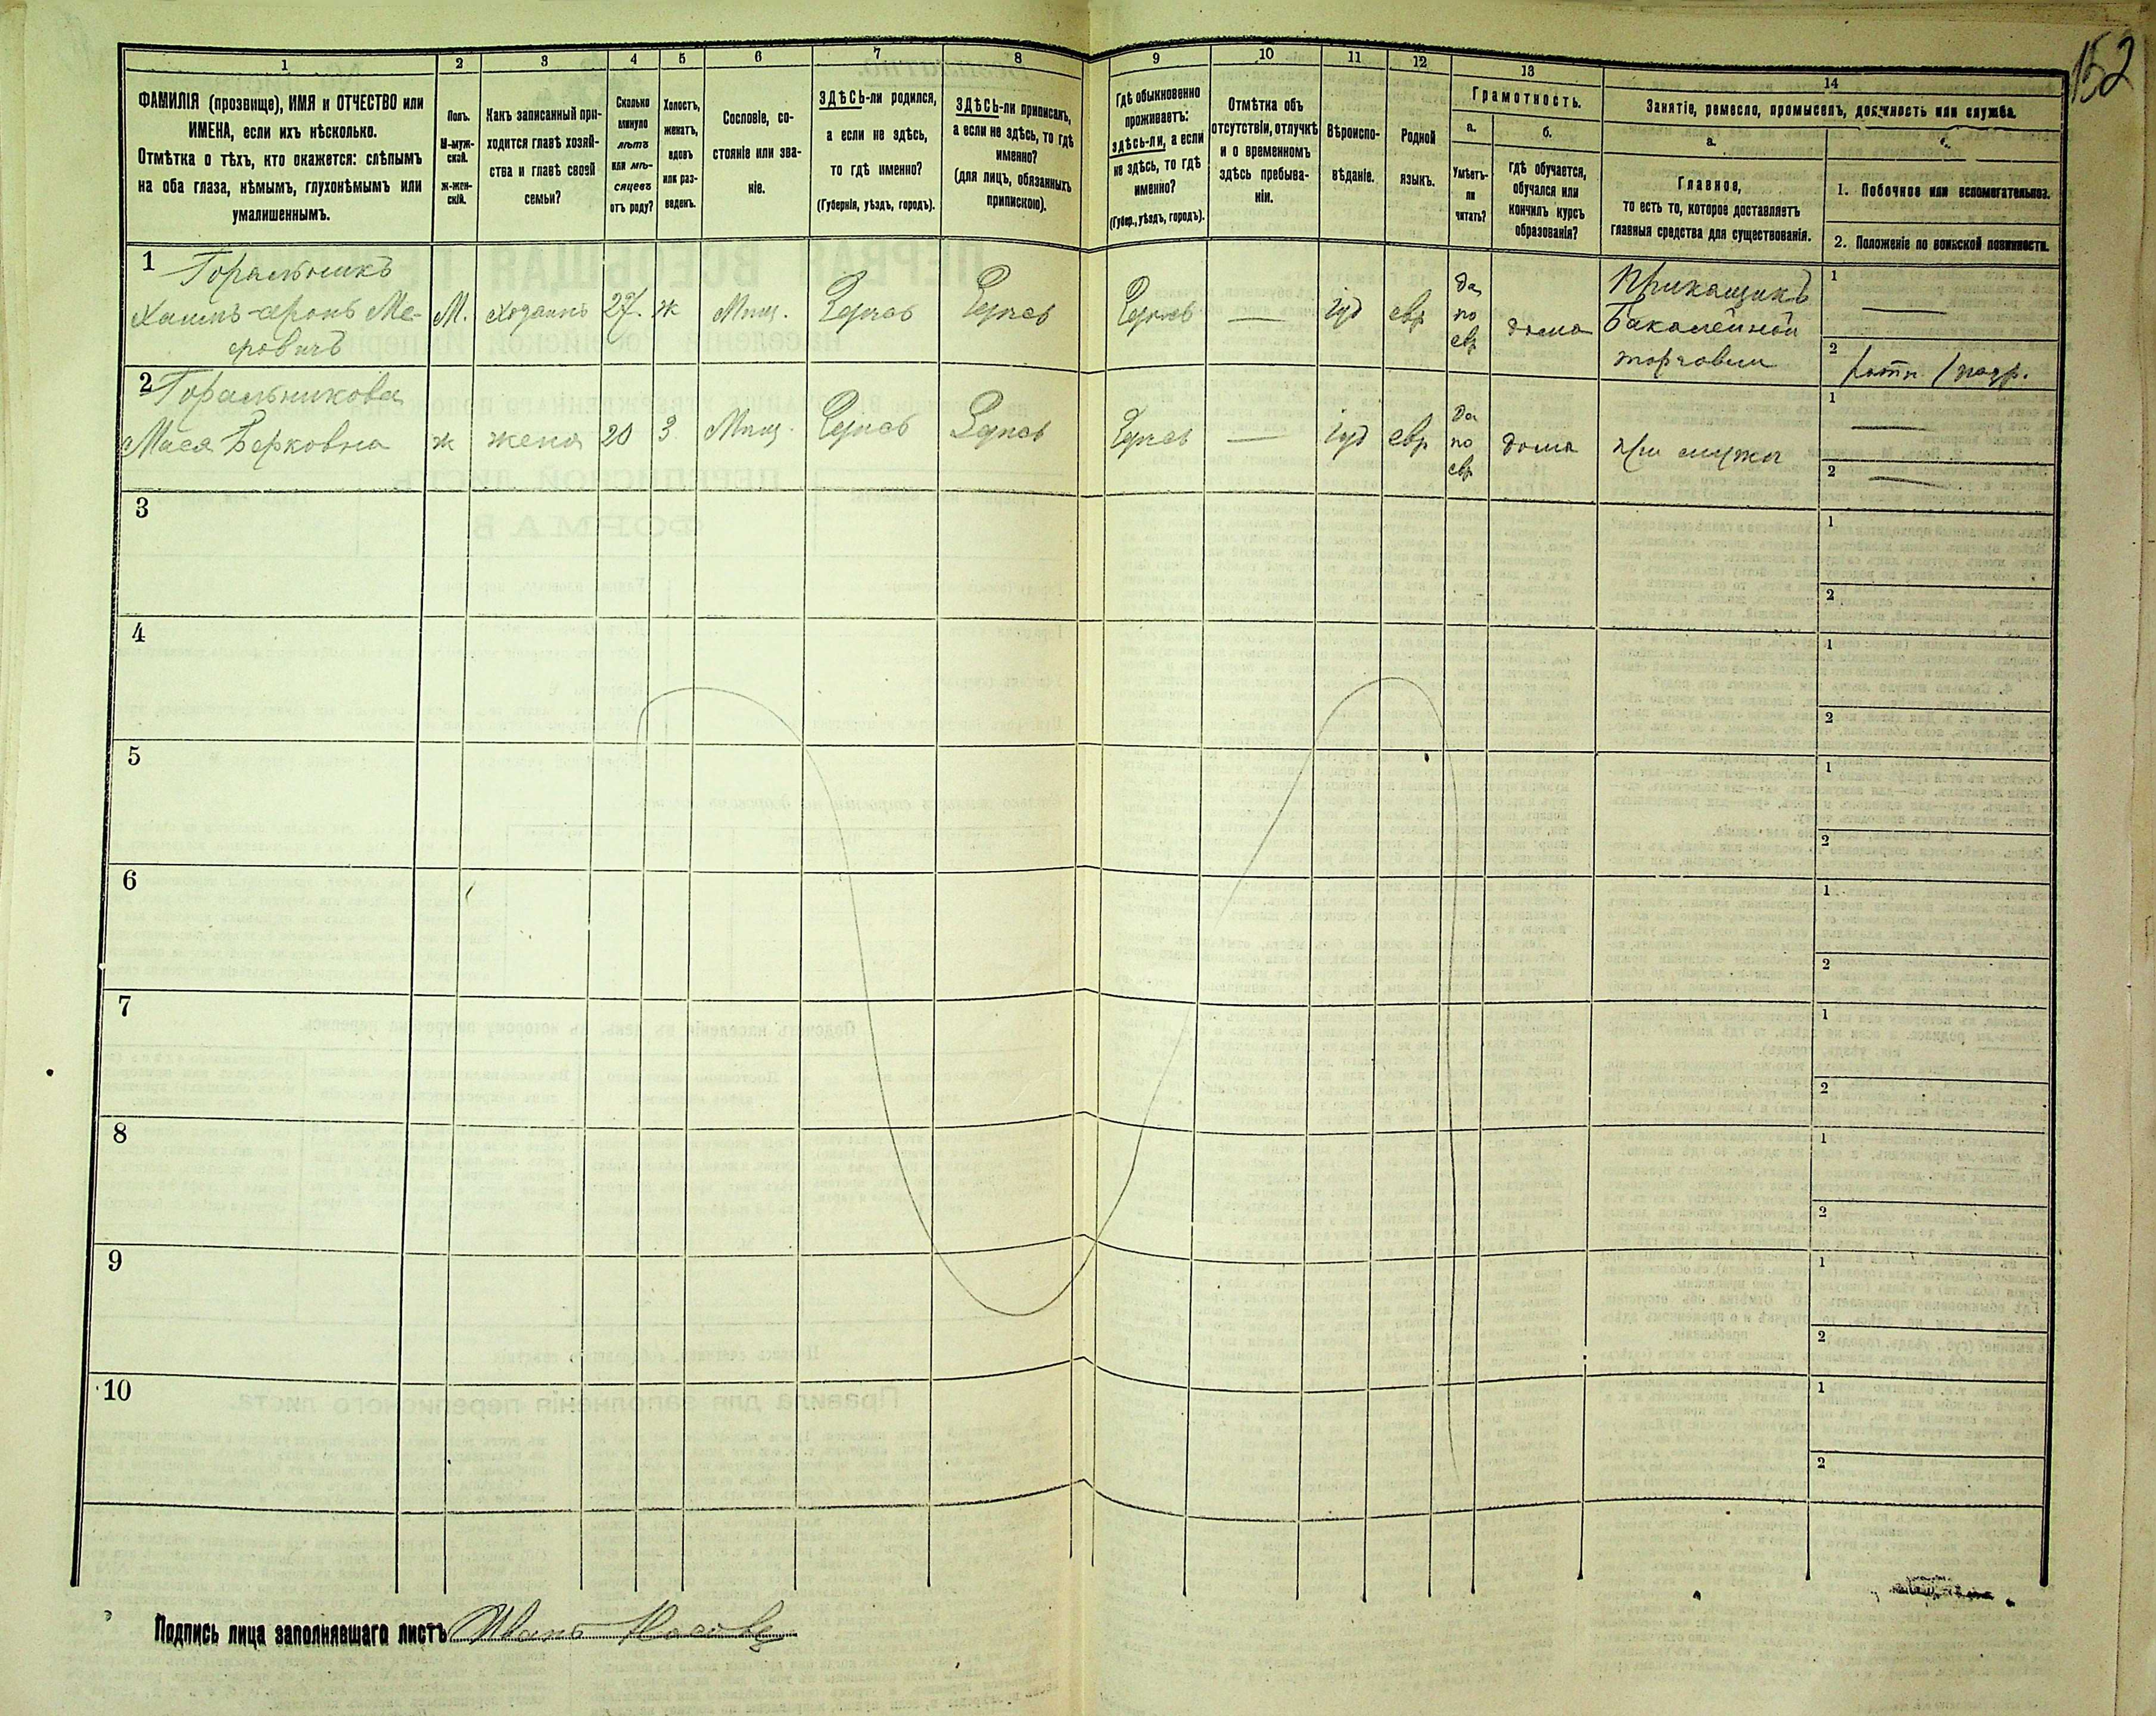 152
1
2
3
4
5
6
7
8
9
10
11
12
13
14
ФАМИЛІЯ (прозвище), ИМЯ и ОТЧЕСТВО или
ИМЕНА, если ихъ нѣсколько.
Отмѣтка о тѣхъ, кто окажется: слѣпымъ
на оба глаза, нѣмымъ, глухонѣмымъ или
умалишеннымъ.
Полъ.
М-муж-
ской.
Ж-жен-
скій.
Какъ записанный при-
ходится главѣ хозяй-
ства и главѣ своей
семьи?
Сколько
минуло
лѣтъ
или мѣ-
сяцевъ
отъ роду?
Холостъ,
женатъ,
вдовъ
или раз-
веденъ.
Сословіе, со-
стояніе или зва-
ніе.
ЗДѢСЬ-ли родился,
а если не здѣсь,
то гдѣ именно?
(Губернія, уѣздъ, городъ).
ЗДѢСЬ-ли приписанъ,
а если не здѣсь, то гдѣ
именно?
(для лицъ, обязанныхъ
припискою).
Гдѣ обыкновенно
проживаетъ:
здѣсь-ли, а если
не здѣсь, то гдѣ
именно?
(Губер., уѣздъ, городъ).
Отмѣтка объ
отсутствіи, отлучкѣ
и о временномъ
здѣсь пребыва-
ніи.
Вѣроиспо-
вѣданіе.
Родной
языкъ.
Грамотность.
а.
Умѣетъ-
ли
читать?
б.
гдѣ обучается,
обучался или
кончилъ курсъ
образованія?
Занятіе, ремесло, промыселъ, должность или служба.
а.
Главное,
то есть то, которое доставляетъ
главныя средства для существованія.
1. Побочное или вспомогательное.
2. Положеніе по воинской повинности.
1
Горальникъ
Хаимъ-Аронъ Ме-
ровичъ
М.
Хозяинъ
27.
ж
Мѣщ.
іуд
евр
да
по
евр
дома
Прикащикъ
бакалейной
торговли
1
2
2
Горальникова
Мася Берковна
ж
жена
20
З
Мѣщ.
іуд
евр
да
по
евр
дома
при мужѣ
1
2
3
1
2
4
1
2
5
1
2
6
1
2
7
1
2
8
1
2
9
1
2
10
1
2
Подпись лица заполнявшаго листъ Иванъ